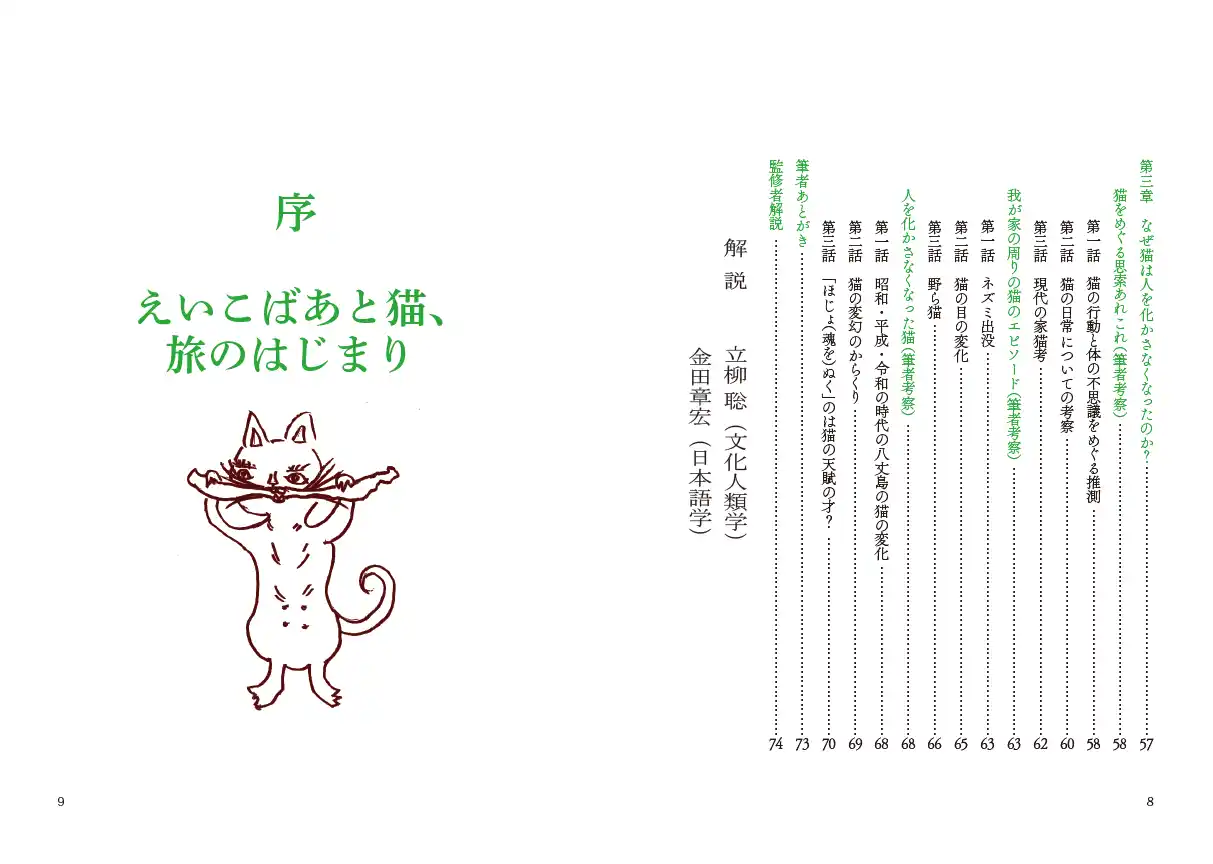 第三章　なぜ猫は人を化かさなくなったのか?……57
猫をめぐる思索あれこれ(筆者考察)……58
第一話　猫の行動と体の不思議をめぐる推測……58
第二話　猫の日常についての考察……60
第三話　現代の家猫考……62
我が家の周りの猫のエピソード(筆者考察)……63
第一話　ネズミ出没……63
第二話　猫の目の変化……65
第三話　野ら猫……66
人を化かさなくなった猫(筆者考察)……68
第一話　昭和・平成・令和の時代の八丈島の猫の変化……68
第二話　猫の変幻のからくり……69
第三話　「ほじょ(魂を)ぬく」のは猫の天賦の才?……70
筆者あとがき……73
監修者解説……74
解説　立柳 聡(文化人類学)
金田章宏(日本語学)
8
序
えいこばあと猫、
旅のはじまり
9